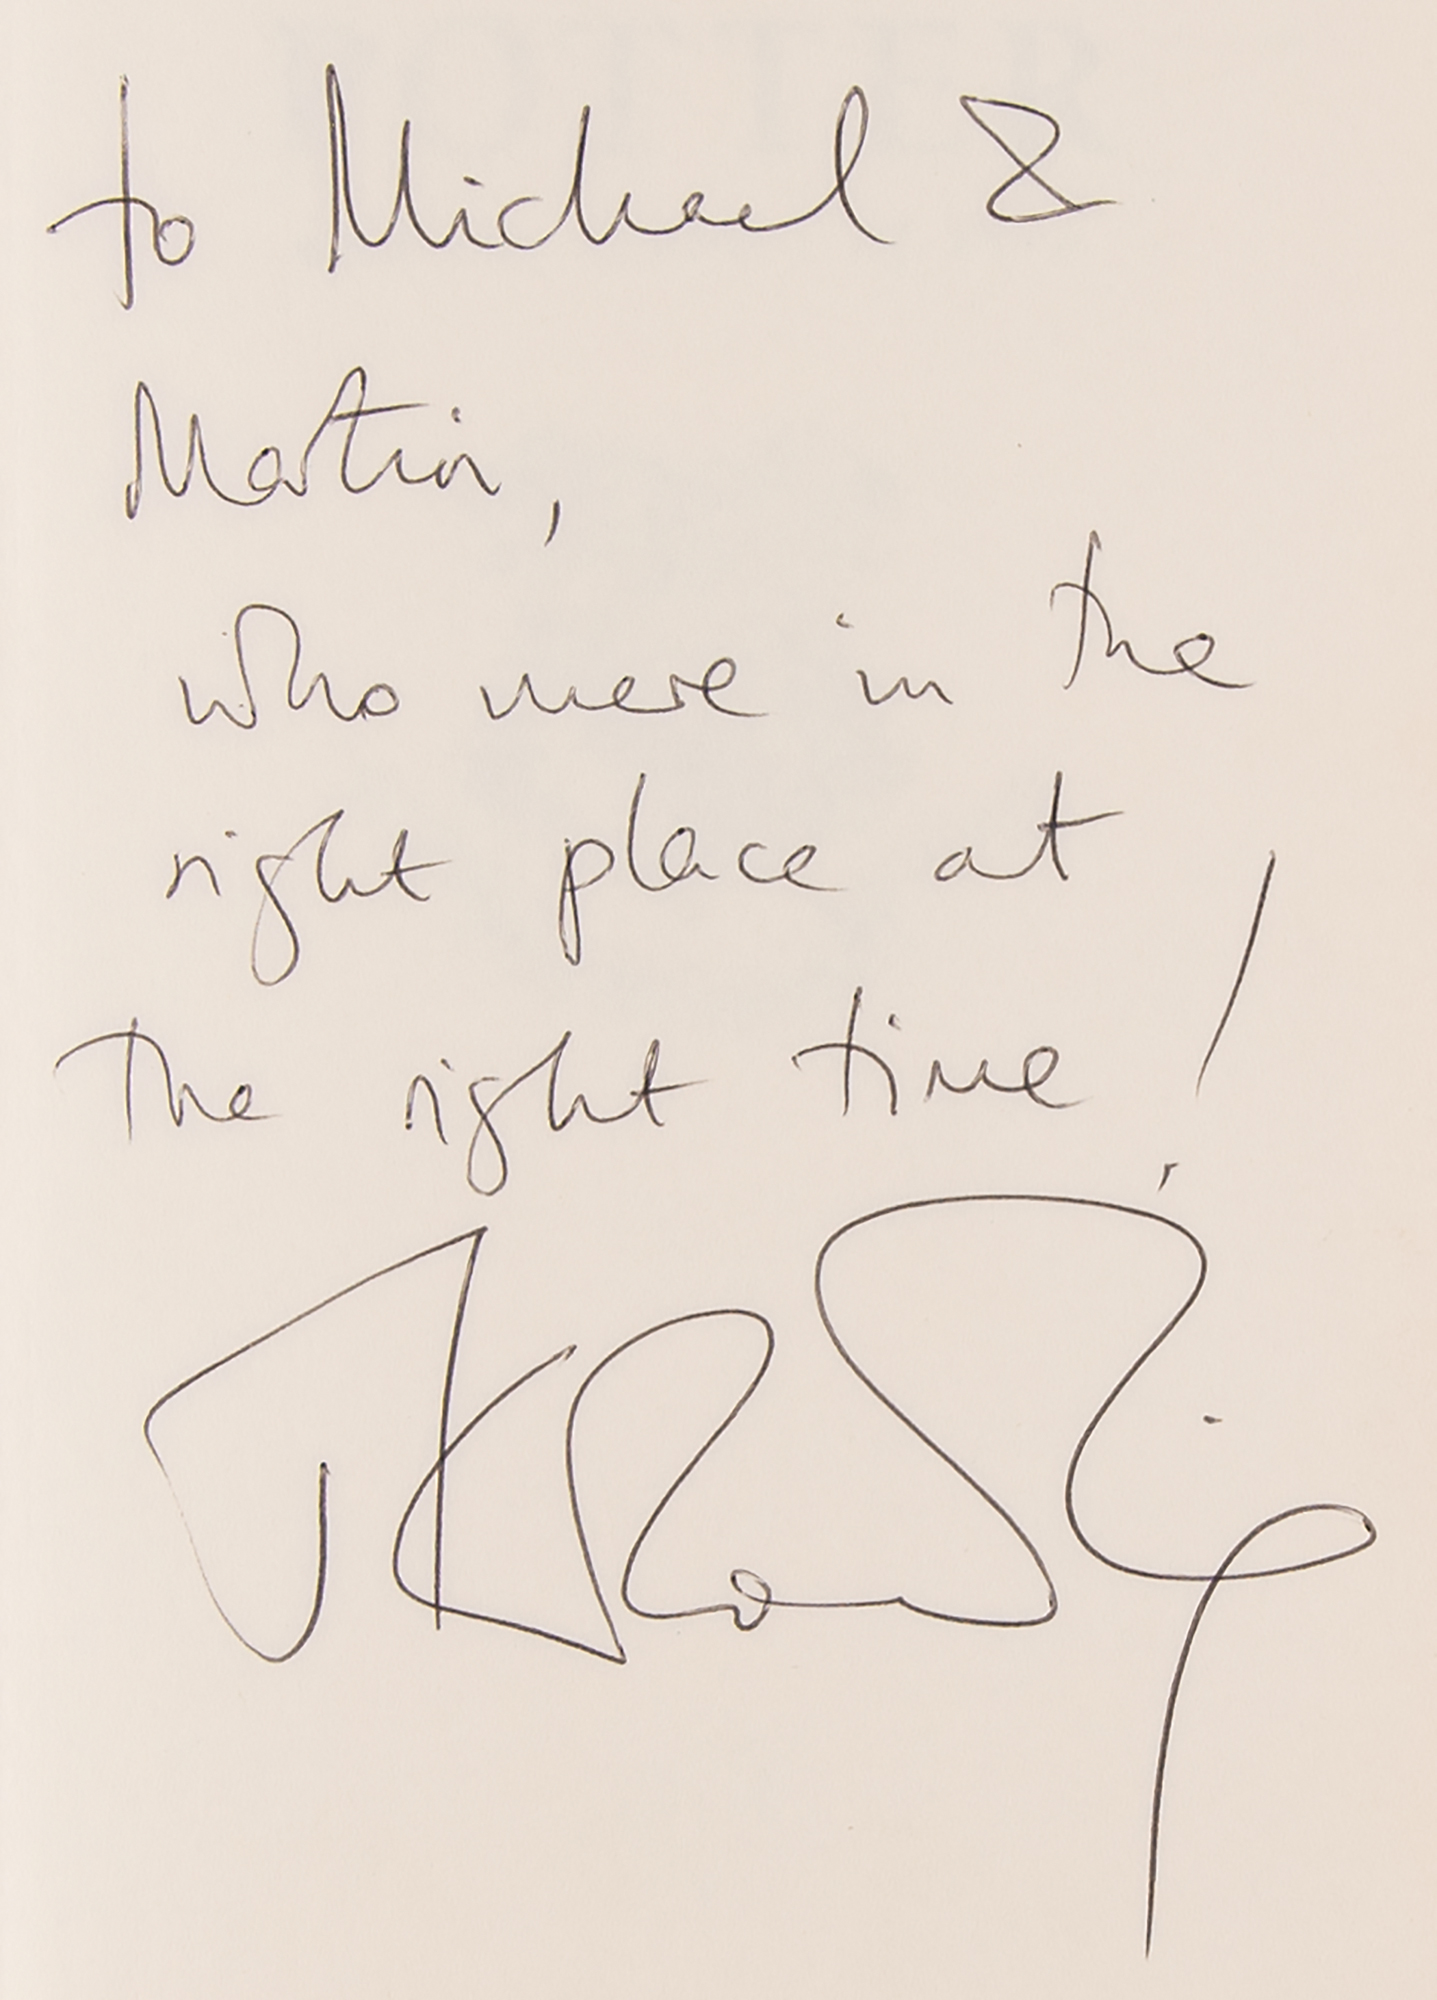 to Michael &
Martin,
who were in the
right place at
the right time!
JKRowling